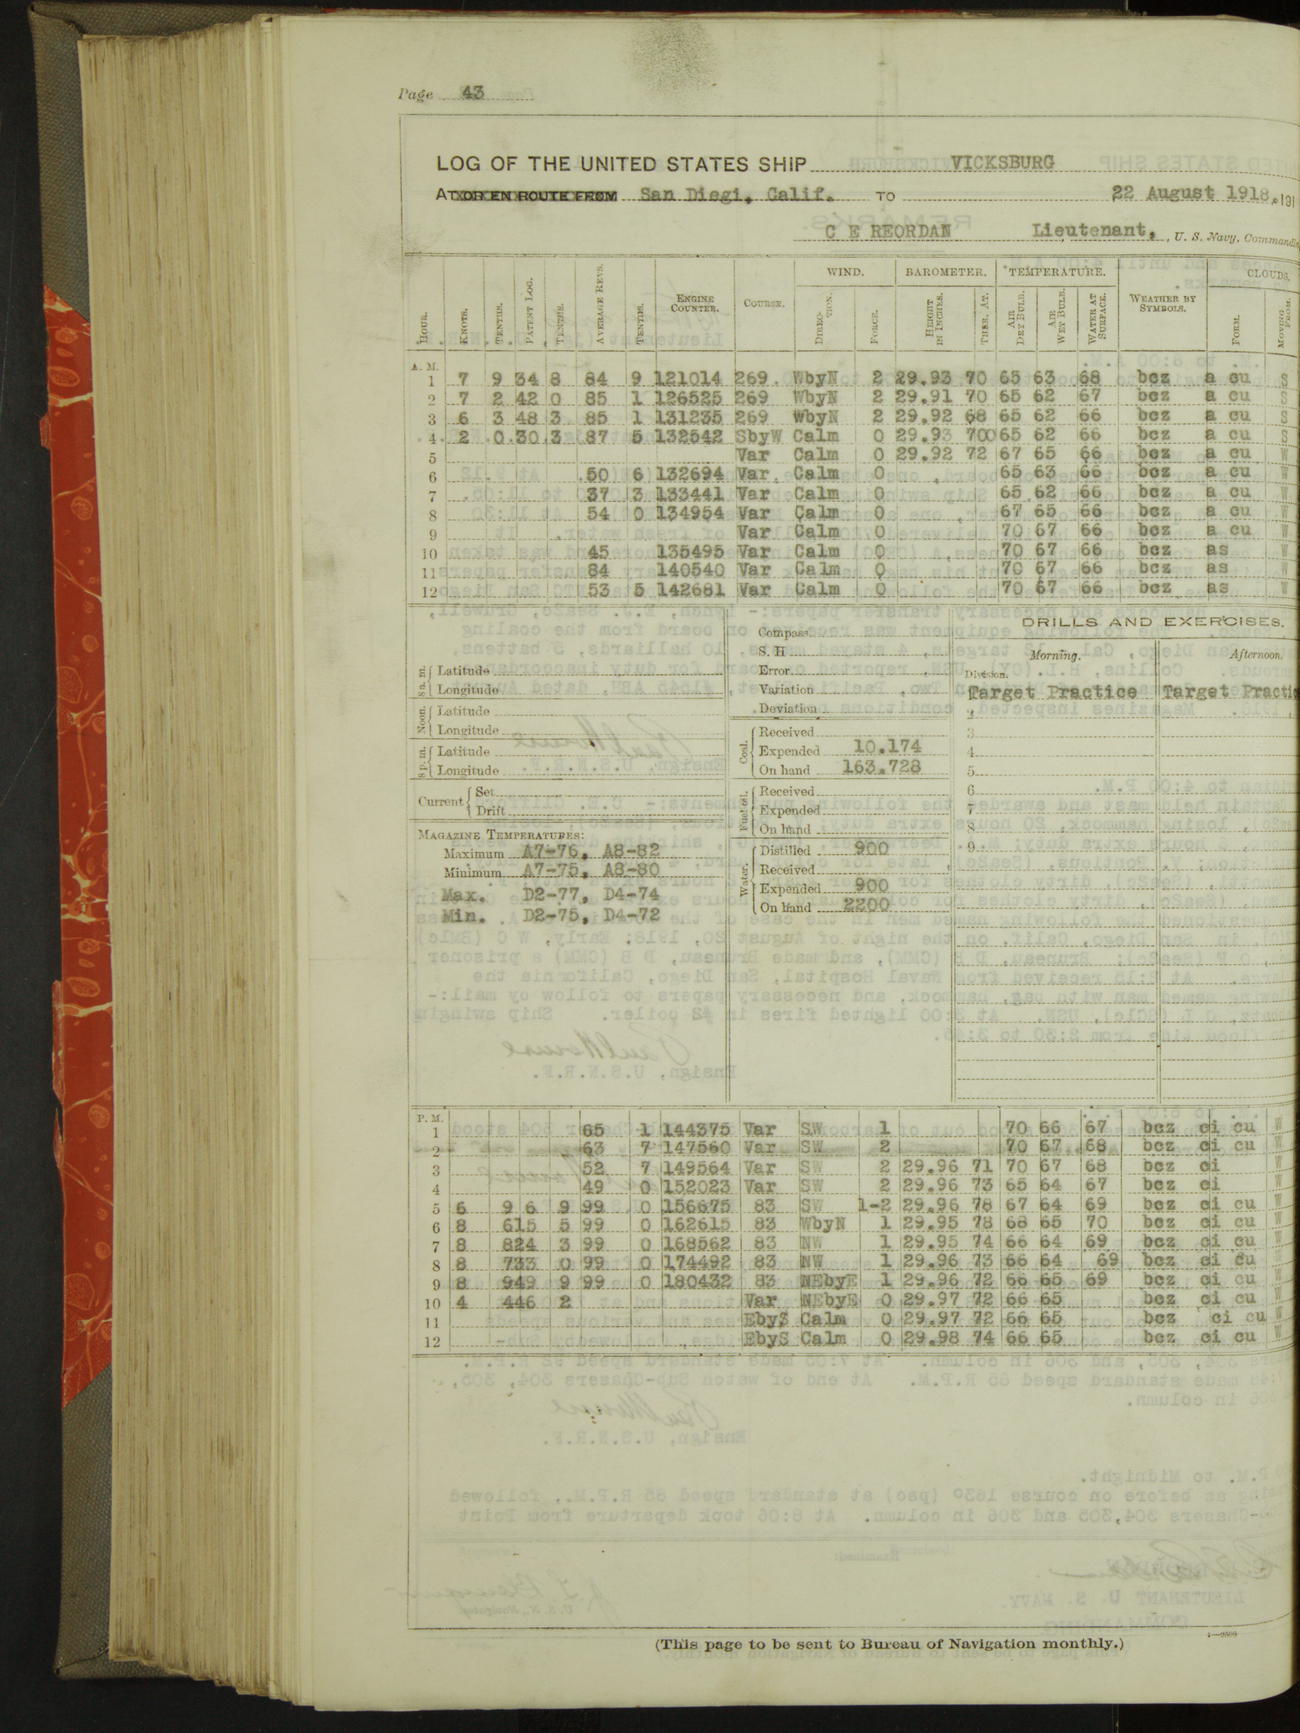 Page 43
LOG OF THE UNITED STATES SHIP VICKSBURG
AT OR EN ROUTE FROM San Diegi, Calif. TO 22 August 1918, 191
C E REORDAN Lieutenant, , U. S. Navy, Commandi
HOUR. KNOTS. TENTHS. PATENT LOG. TENTHS. AVERAGE REVS. TENTHS. ENGINE COUNTER. COURSE. WIND. DIRECTION. FORCE. BAROMETER. HEIGHT IN INCHES. THER. AT. TEMPERATURE. AIR DRY BULB. AIR WET BULB. WATER AT SURFACE. WEATHER BY SYMBOLS. CLOUDS. FORM. MOVING FROM.
A. M.
1 7 9 34 8 84 9 121014 269 WbyN 2 29.93 70 65 63 68 bcz a cu S
2 7 2 42 0 85 1 126525 269 WbyN 2 29.91 70 65 62 67 bcz a cu S
3 6 3 48 3 85 1 131235 269 WbyN 2 29.92 68 65 62 66 bcz a cu S
4 2 0 30 3 87 5 132542 SbyW Calm 0 29.93 700 65 62 66 bcz a cu S
5 Var Calm 0 29.92 72 67 65 66 bcz a cu W
6 50 6 132694 Var Calm 0 65 63 66 bcz a cu W
7 37 3 133441 Var Calm 0 65 62 66 bcz a cu W
8 54 0 134954 Var Calm 0 67 65 66 bcz a cu W
9 Var Calm 0 70 67 66 bcz a cu W
10 45 135495 Var Calm 0 70 67 66 bcz as W
11 84 140540 Var Calm 0 70 67 66 bcz as W
12 53 5 142681 Var Calm 0 70 67 66 bcz as W
8 a. m. Latitude
Longitude
Noon. Latitude
Longitude
8 p. m. Latitude
Longitude
Current Set
Drift
MAGAZINE TEMPERATURES:
Maximum A7-76, A8-82
Minimum A7-75, A8-80
Max. D2-77, D4-74
Min. D2-75, D4-72
Compass
S. H
Error
Variation
Deviation
Coal. Received
Expended 10.174
On hand 163.728
Fuel oil. Received
Expended
On hand
Water. Distilled 900
Received
Expended 900
On hand 2200
DRILLS AND EXERCISES.
Morning. Afternoon.
Division.
Target Practice Target Practi
2
3
4
5
6
7
8
9
P. M.
1 65 1 144375 Var SW 1 70 66 67 bcz ci cu W
2 63 7 147560 Var SW 2 70 67 68 bcz ci cu W
3 52 7 149564 Var SW 2 29.96 71 70 67 68 bcz ci W
4 49 0 152023 Var SW 2 29.96 73 65 64 67 bcz ci W
5 6 9 6 9 99 0 156675 83 SW 1-2 29.96 78 67 64 69 bcz ci cu W
6 8 615 5 99 0 162615 83 WbyN 1 29.95 78 68 65 70 bcz ci cu W
7 8 824 3 99 0 168562 83 NW 1 29.95 74 66 64 69 bcz ci cu W
8 8 733 0 99 0 174492 83 NW 1 29.96 73 66 64 69 bcz ci cu W
9 8 949 9 99 0 180432 83 NEbyE 1 29.96 72 66 65 69 bcz ci cu W
10 4 446 2 Var NEbyE 0 29.97 72 66 65 bcz ci cu W
11 EbyS Calm 0 29.97 72 66 65 bcz ci cu W
12 EbyS Calm 0 29.98 74 66 65 bcz ci cu W
(This page to be sent to Bureau of Navigation monthly.)